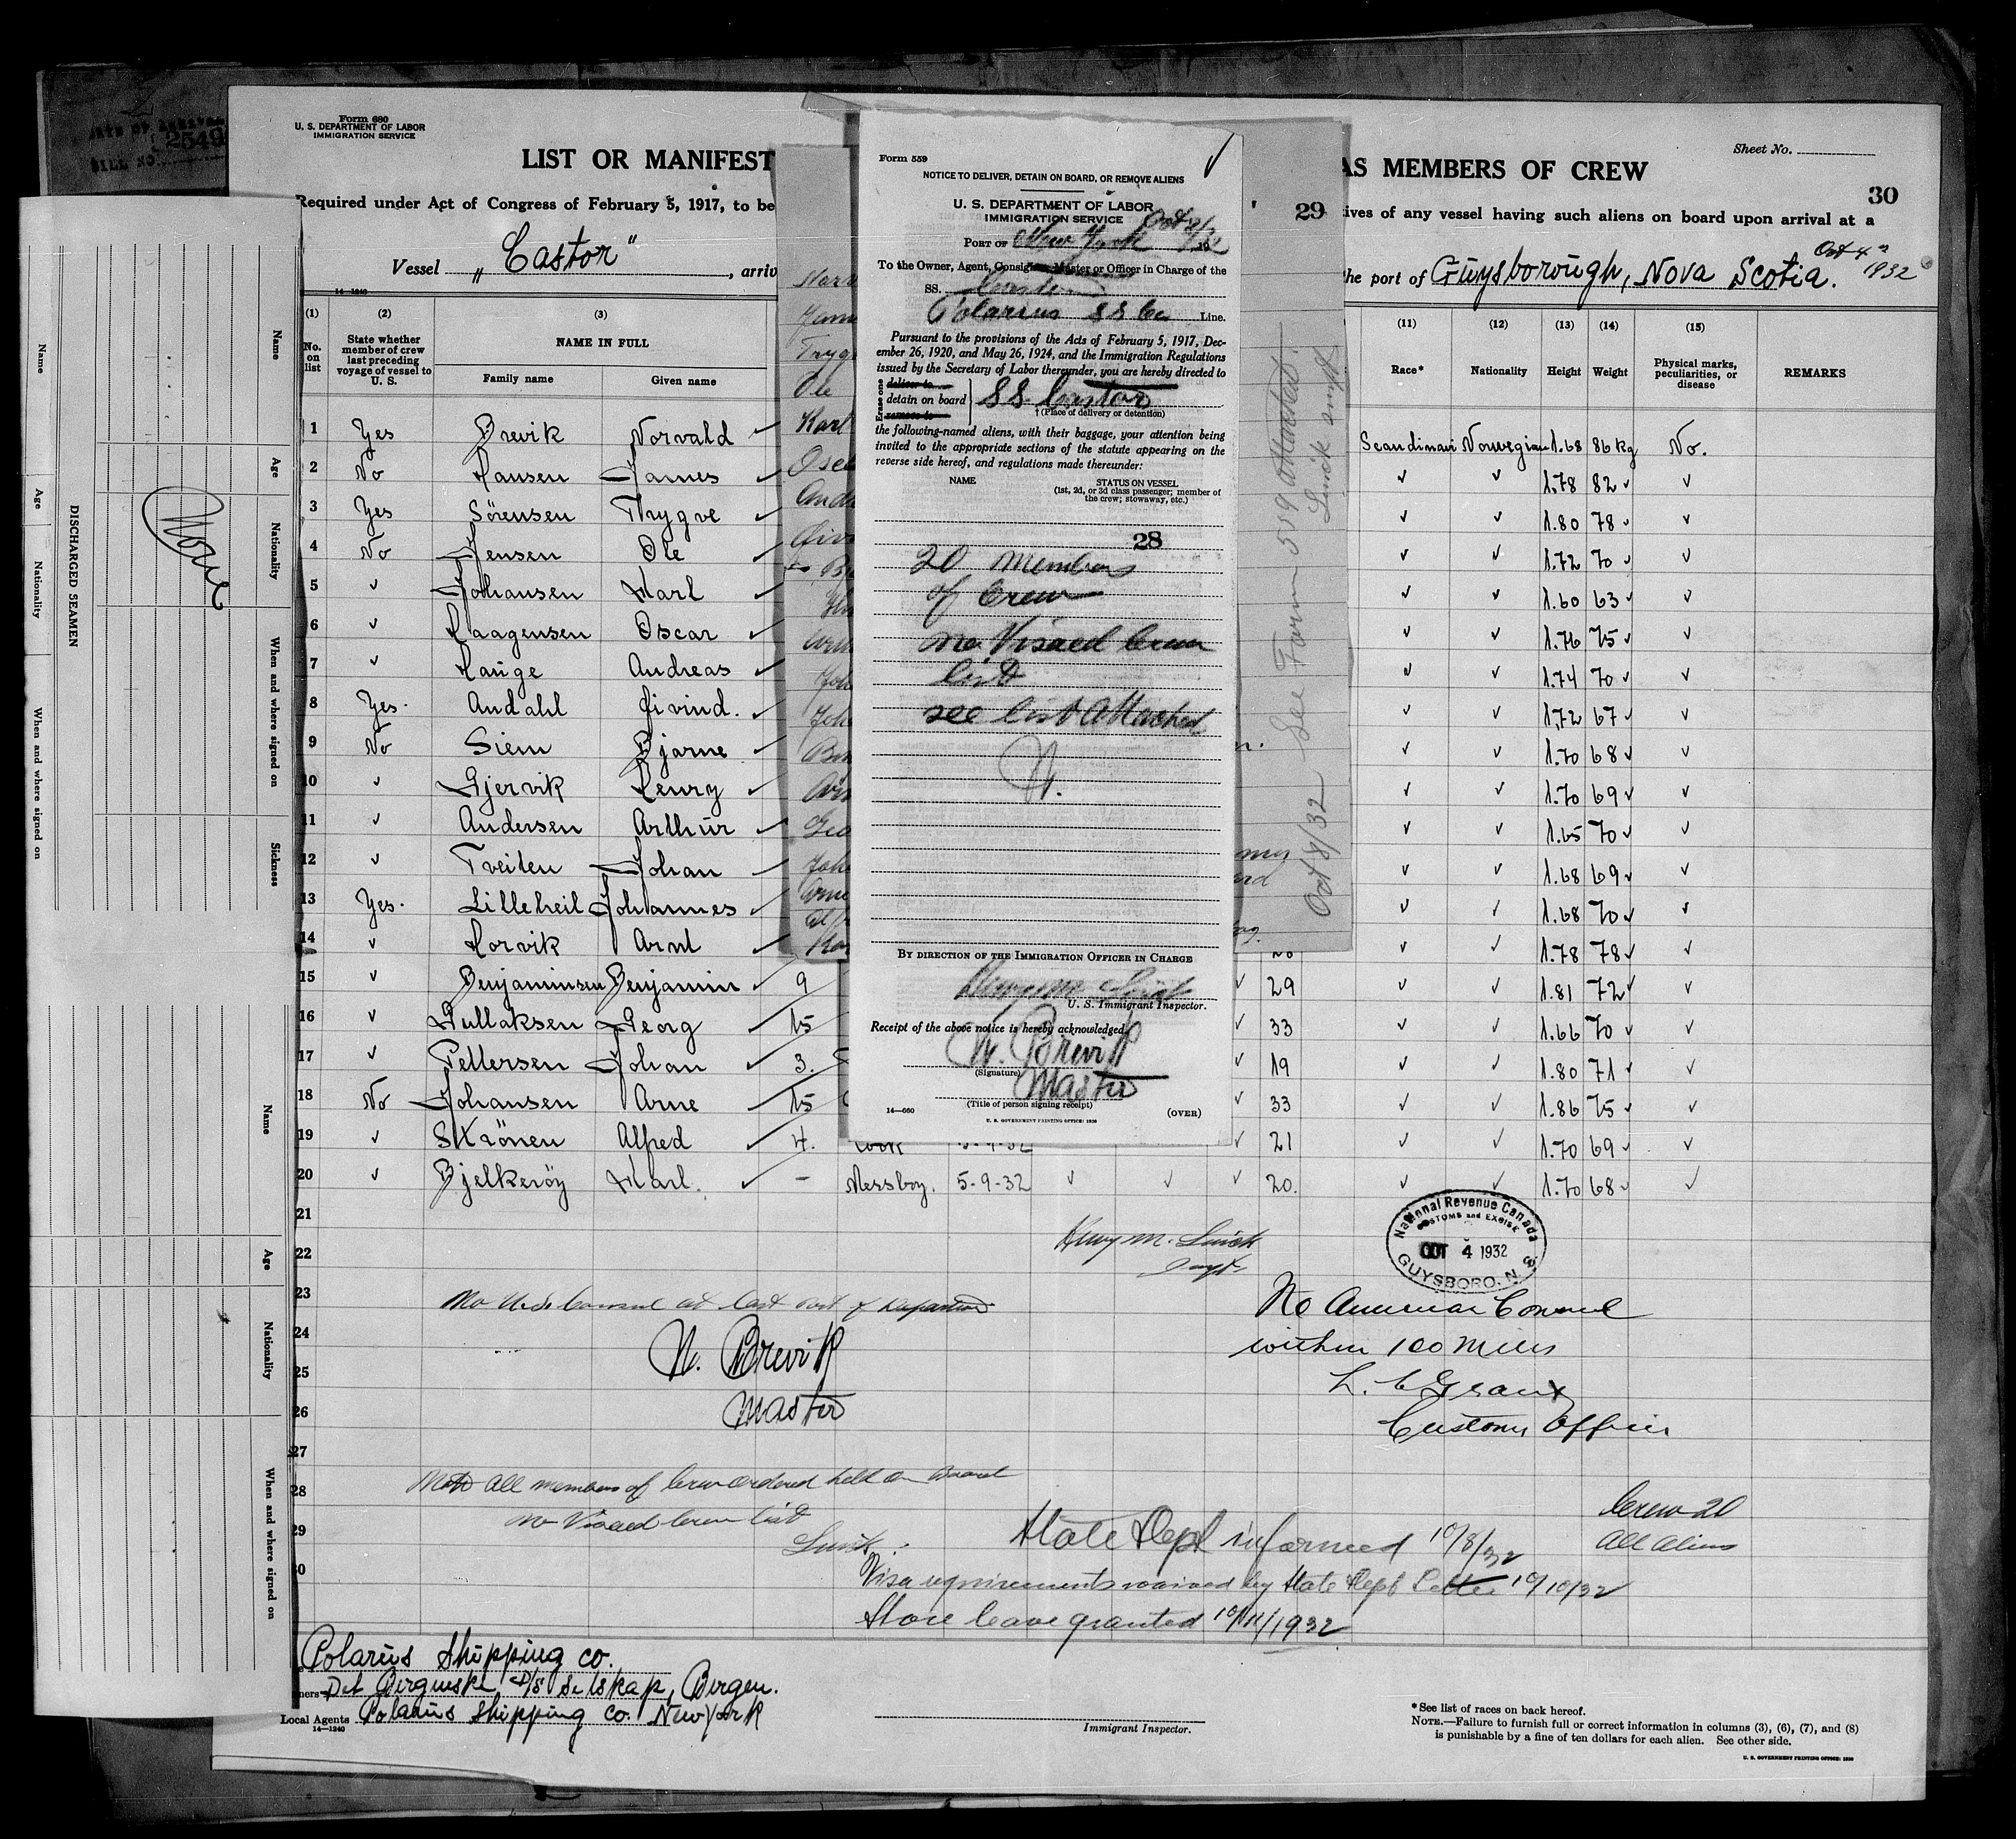 DATE OF ARRIVAL
BILL NO. 2549
Form 680
U. S. DEPARTMENT OF LABOR
IMMIGRATION SERVICE
LIST OR MANIFEST
AS MEMBERS OF CREW
Sheet No.
30
Required under Act of Congress of February 5, 1917, to be
tives of any vessel having such aliens on board upon arrival at a
Vessel „Castor", arriv
the port of Guysborough, Nova Scotia. Oct 4th 1932
14—1240
(1) (2) (3) (11) (12) (13) (14) (15)
No. on list
State whether member of crew last preceding voyage of vessel to U. S.
NAME IN FULL
Family name Given name
Race* Nationality Height Weight Physical marks, peculiarities, or disease REMARKS
1 Yes Brevik Norvald ✓ Scandinavi Norwegian 1.68 86 kg No.
2 No Hansen James ✓ ✓ ✓ 1.78 82 ✓ ✓
3 Yes Sörensen Trygve ✓ ✓ ✓ 1.80 78 ✓ ✓
4 No Jensen Ole ✓ ✓ ✓ 1.72 70 ✓ ✓
5 ✓ Johansen Karl ✓ ✓ ✓ 1.60 63 ✓ ✓
6 ✓ Haagensen Oscar ✓ ✓ ✓ 1.76 75 ✓ ✓
7 ✓ Hauge Andreas ✓ ✓ ✓ 1.74 70 ✓ ✓
8 Yes. Andahl Eivind. ✓ ✓ ✓ 1.72 67 ✓ ✓
9 No Siem Bjarne ✓ ✓ ✓ 1.70 68 ✓ ✓
10 ✓ Gjervik Henry ✓ ✓ ✓ 1.70 69 ✓ ✓
11 ✓ Andersen Arthur ✓ ✓ ✓ 1.65 70 ✓ ✓
12 ✓ Tveiten Johan ✓ ✓ ✓ 1.68 69 ✓ ✓
13 Yes. Lilleheil Johannes ✓ ✓ ✓ 1.68 70 ✓ ✓
14 ✓ Horvik Arnt ✓ ✓ ✓ 1.78 78 ✓ ✓
15 ✓ Benjaminsen Benjamin ✓ 9 ✓ 29 ✓ ✓ 1.81 72 ✓ ✓
16 ✓ Gullaksen Georg ✓ 15 ✓ 33 ✓ ✓ 1.66 70 ✓ ✓
17 ✓ Pettersen Johan ✓ 3. ✓ 19 ✓ ✓ 1.80 71 ✓ ✓
18 No Johansen Arne ✓ 15 ✓ 33 ✓ ✓ 1.86 75 ✓ ✓
19 ✓ Skrönen Alfred ✓ 4. Cook 5-9-32 ✓ 21 ✓ ✓ 1.70 69 ✓ ✓
20 ✓ Bjelkeröy Karl. ✓ – Messboy. 5-9-32 ✓ ✓ ✓ 20. ✓ ✓ 1.70 68 ✓ ✓
21
22
23
24
25
26
27
28
29
30
Form 559
NOTICE TO DELIVER, DETAIN ON BOARD, OR REMOVE ALIENS
U. S. DEPARTMENT OF LABOR
IMMIGRATION SERVICE
PORT OF New York Oct 8/32
To the Owner, Agent, Consignee, Master or Officer in Charge of the
SS. Castor
Polarius SS Co Line.
Pursuant to the provisions of the Acts of February 5, 1917, Dec-
ember 26, 1920, and May 26, 1924, and the Immigration Regulations
issued by the Secretary of Labor thereunder, you are hereby directed to
Erase one
deliver to
detain on board
remove to
SS. Castor
† (Place of delivery or detention)
the following-named aliens, with their baggage, your attention being
invited to the appropriate sections of the statute appearing on the
reverse side hereof, and regulations made thereunder:
NAME
STATUS ON VESSEL
(1st, 2d, or 3d class passenger; member of
the crew; stowaway, etc.)
28
20 Members
of Crew
no Visaed Crew
list
see list attached
By direction of the Immigration Officer in Charge
Henry M. Linick
U. S. Immigrant Inspector.
Receipt of the above notice is hereby acknowledged.
N. Brevik
(Signature)
Master
(Title of person signing receipt)
14—660
(OVER)
U. S. GOVERNMENT PRINTING OFFICE: 1930
29
See Form 559 attached.
Oct 8/32
Name
Age
Nationality
When and where signed on
DISCHARGED SEAMEN
Name
Age
Nationality
When and where signed on
Sickness
None
Name
Age
Nationality
When and where signed on
National Revenue Canada
CUSTOMS and EXCISE
OCT 4 1932
GUYSBORO. N. S.
Henry M. Linick
Inspt.
No U.S. Consul at last port of departure
N. Brevik
Master
No American Consul
within 100 miles
Customs Officer
Note All members of Crew ordered held on Board
no Visaed Crew list
Linick
Crew 20
All Aliens
State Dept informed 10/8/32
Visa requirements waived by State Dept Letter 10/10/32
Shore leave granted 10/11/1932
Polarius Shipping co.
Det Bergenske D/S Selskap, Bergen.
Local Agents Polarius Shipping Co. New York
14—1240
Immigrant Inspector.
* See list of races on back hereof.
NOTE.—Failure to furnish full or correct information in columns (3), (6), (7), and (8)
is punishable by a fine of ten dollars for each alien. See other side.
U. S. GOVERNMENT PRINTING OFFICE: 1930